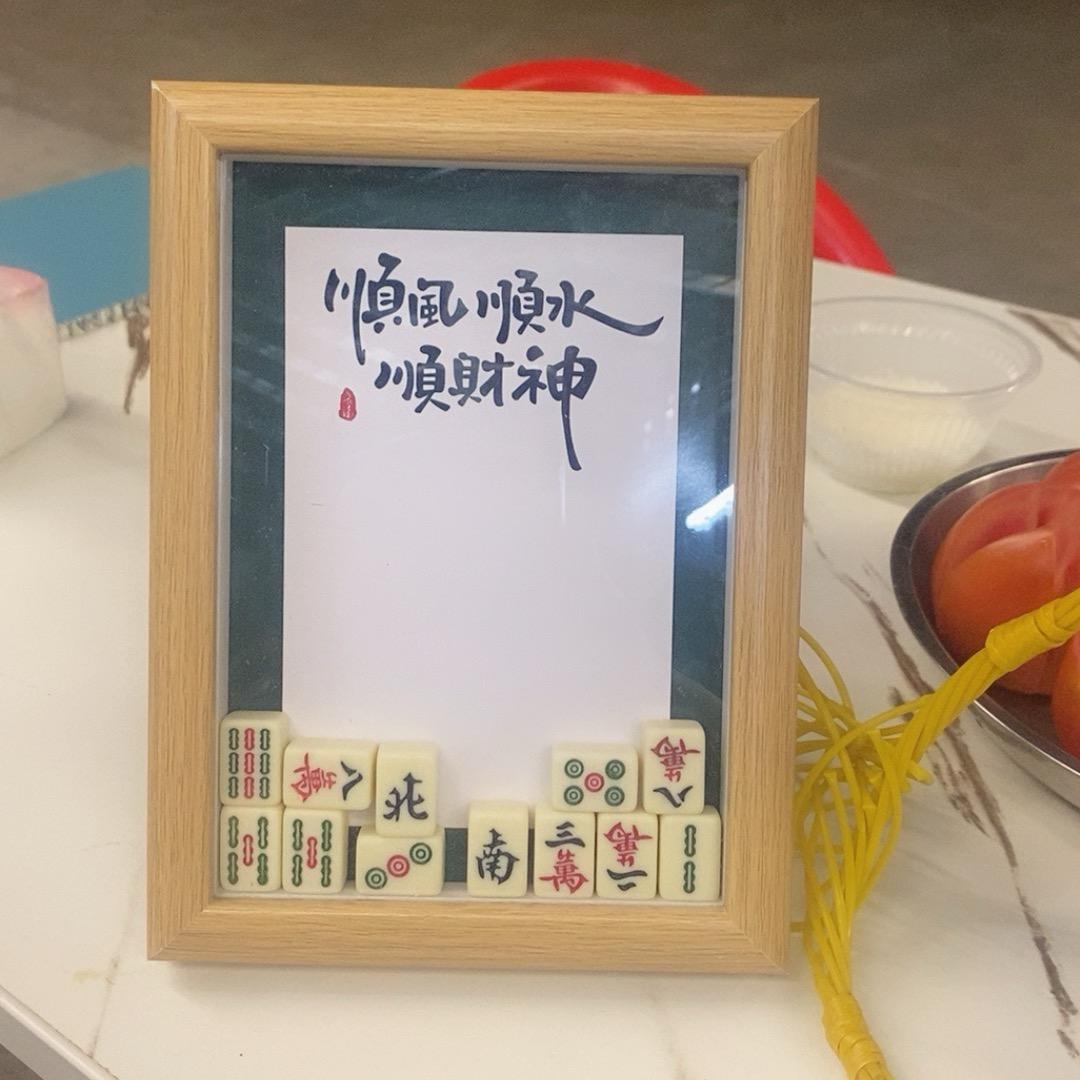 順風順水
順財神
萬八
北
萬八
南
三萬
萬二